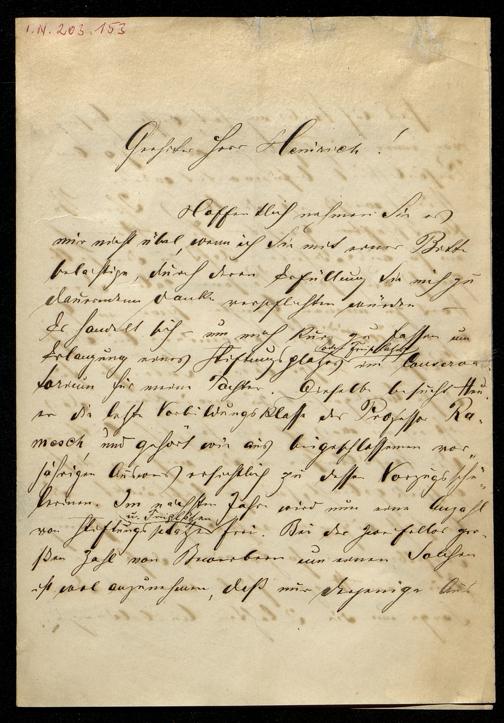 I.N. 203.153
Geehrter Herr Heinrich!
Hoffentlich nehmen Sie es
mir nicht übel, wenn ich Sie mit einer Bitte
belästige, durch deren Erfüllung Sie mich zu
dauerndem Danke verpflichten würden.
Es handelt sich – um mich kurz zu fassen um
oder Freiplatzes
Erlangung eines Stiftungsplatzes im Conserva-
torium für meine Tochter. Dieselbe besucht heu-
er die letzte Vorbildungsklasse des Professor Ra-
mesch, und gehört wie aus beigeschlossenem vor-
jährigen Ausweis ersichtlich zu dessen Vorzugsschü-
lerinen. Im nächsten Jahre wird nun eine Anzahl
u. Freiplätzen
von Stiftungsplätzen frei. Bei der zweifellos gro-
ßen Zahl von Bewerbern um einen Solchen
ist wol anzunehmen, daß nur diejenige Aus